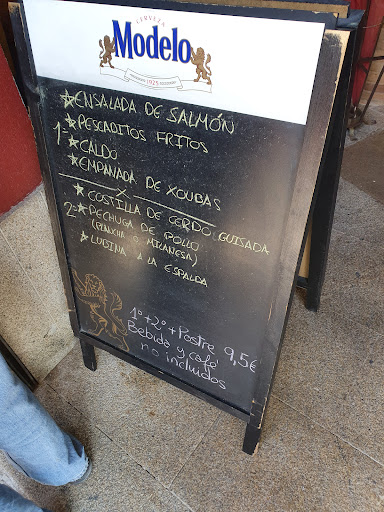 CERVEZA
Modelo
1925
★ENSALADA DE SALMÓN
★PESCADITOS FRITOS
1º- ★CALDO
★EMPANADA DE XOUBAS
X
★COSTILLA DE CERDO GUISADA
2º- ★PECHUGA DE POLLO
(PLANCHA O MILANESA)
★LUBINA A LA ESPALDA
1º+2º+Postre 9,5€
Bebida y café
no incluidos